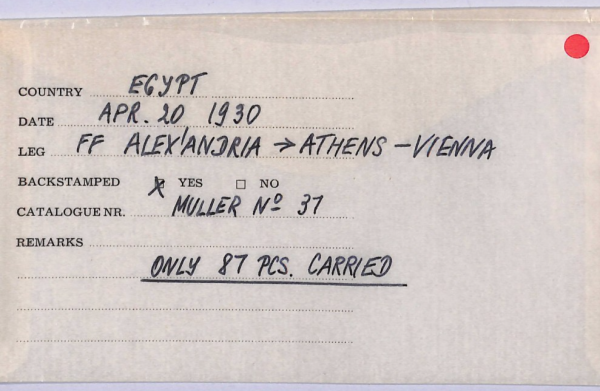 COUNTRY EGYPT
DATE APR. 20 1930
LEG FF ALEX'ANDRIA → ATHENS - VIENNA
BACKSTAMPED X YES □ NO
CATALOGUE NR. MULLER Nº 37
REMARKS
ONLY 87 PCS. CARRIED